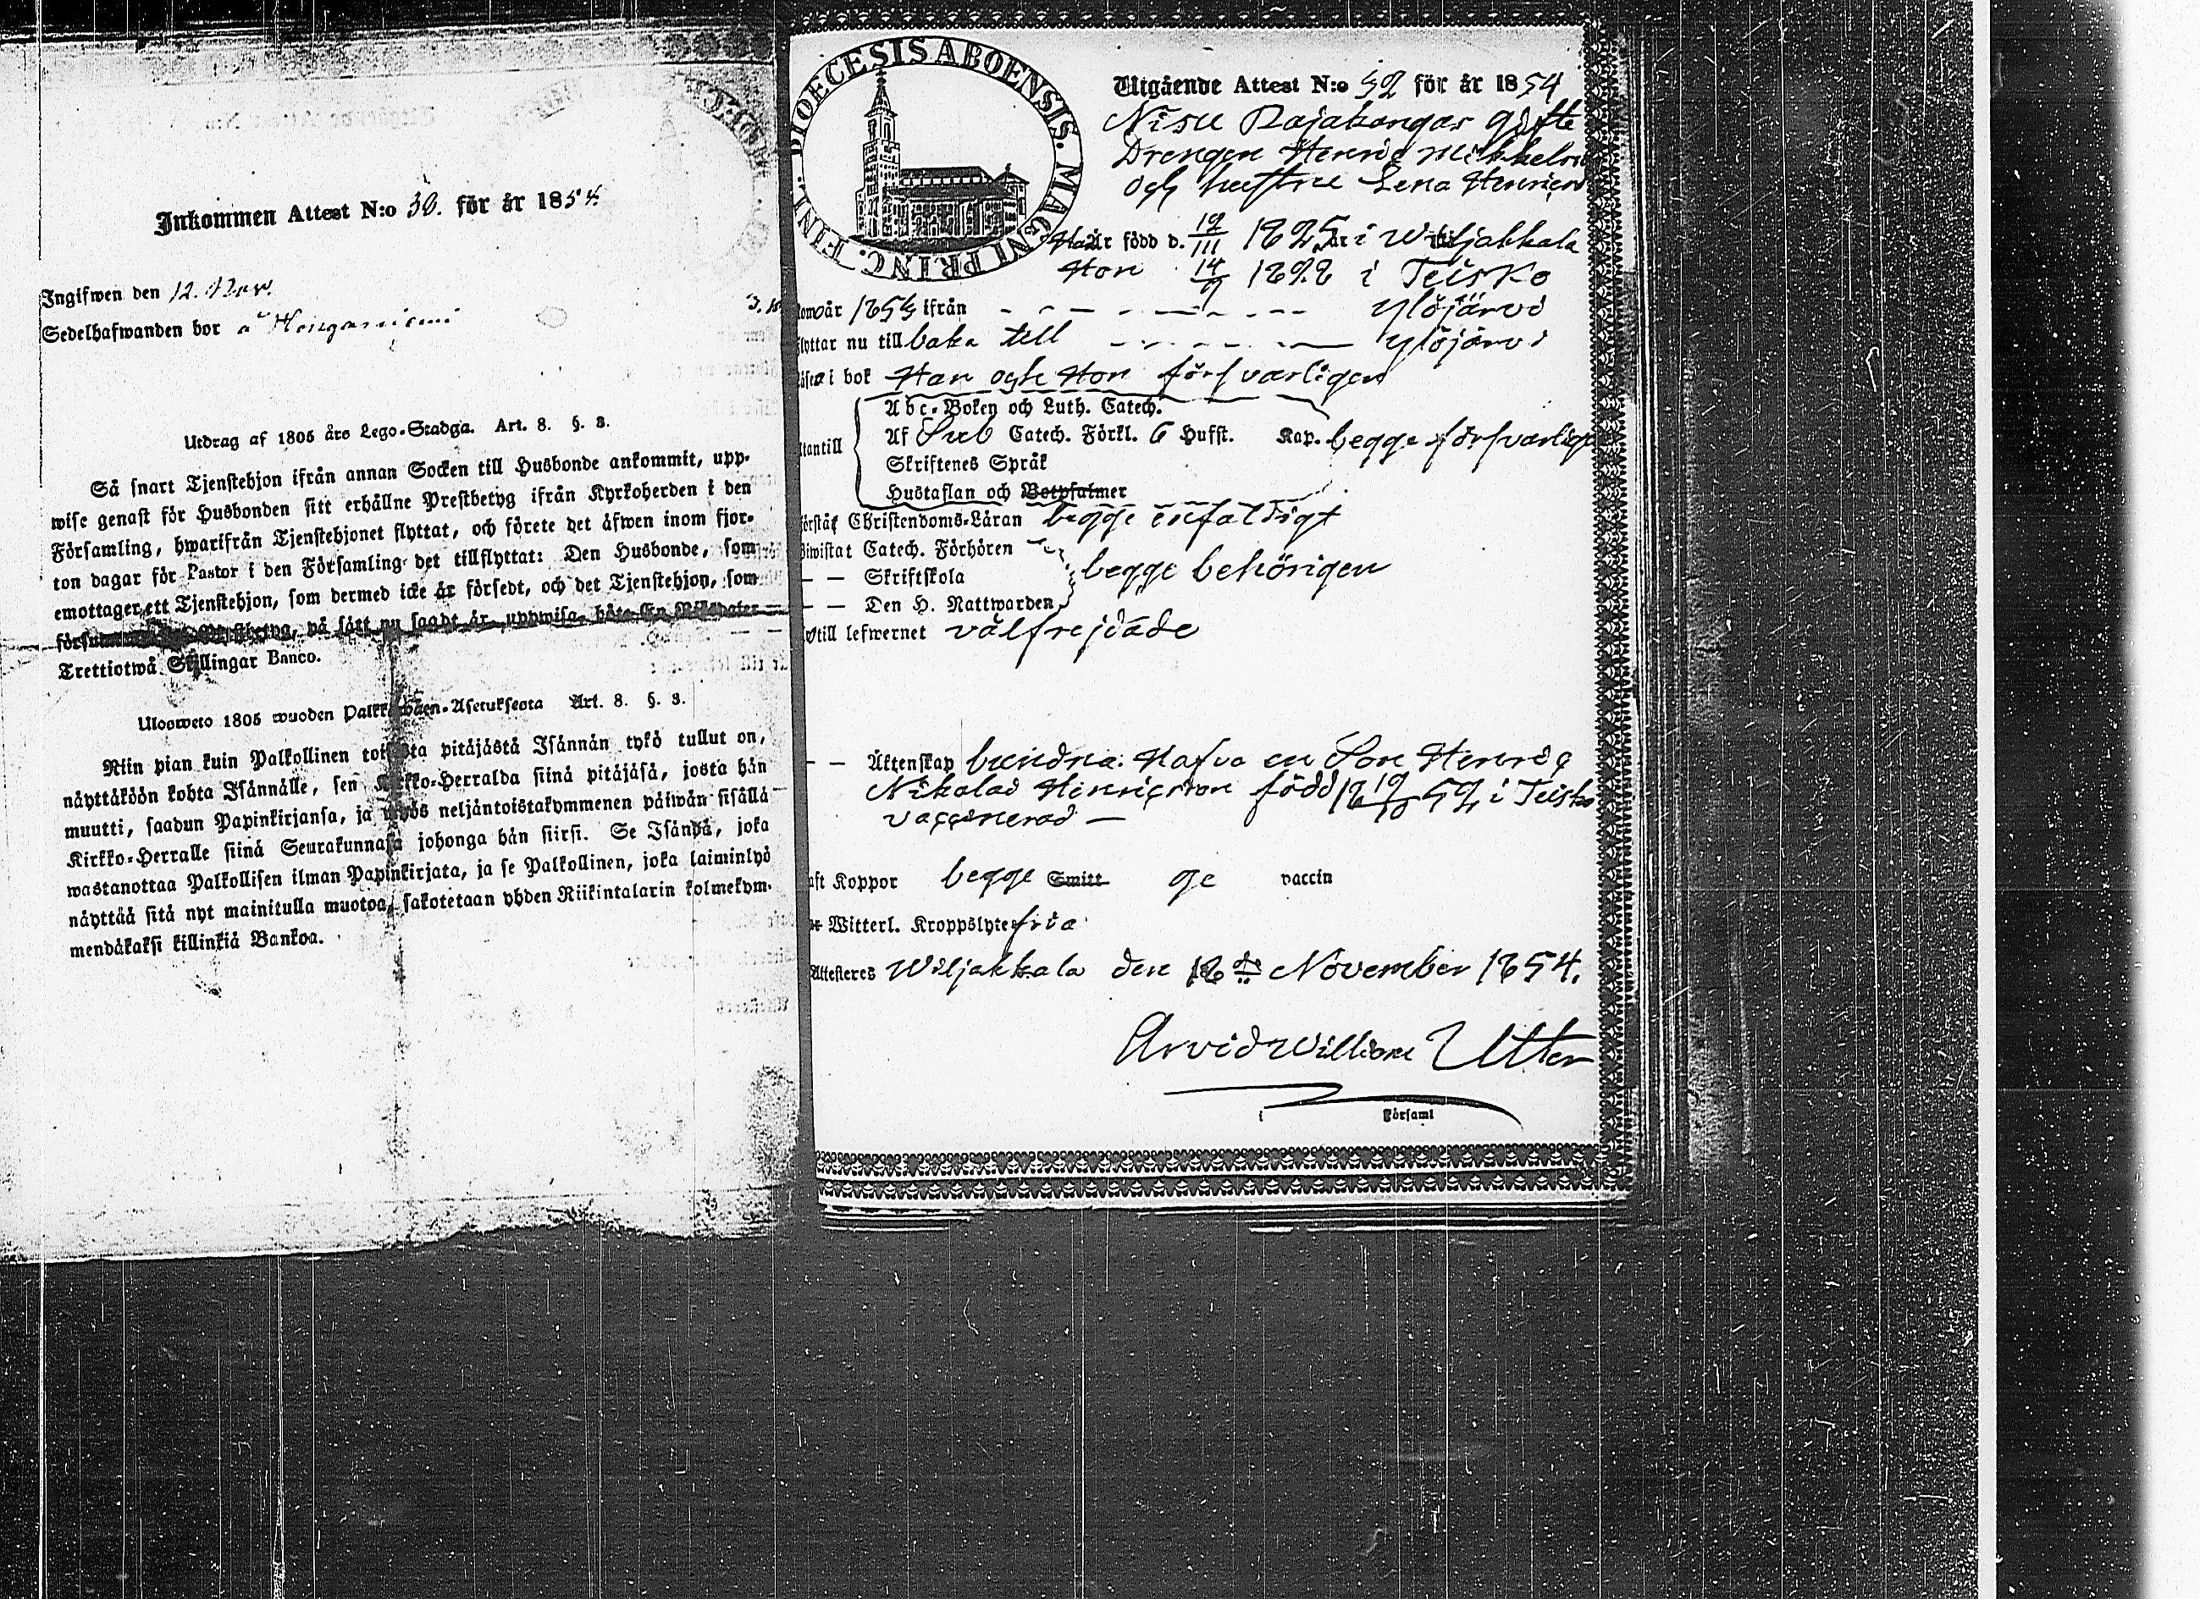 Inkommen Attest N:o 30. för år 1854.
Ingifwen den 12. Nov.
Sedelhafwanden bor å
Utdrag af 1805 års Lego-Stadga. Art. 8. §. 3.
Så snart Tjenstehjon ifrån annan Socken till Husbonde ankommit, upp-
wise genast för Husbonden sitt erhållne Prestbetyg ifrån Kyrkoherden i den
Församling, hwarifrån Tjenstehjonet flyttat, och förete det äfwen inom fjor-
ton dagar för Pastor i den Församling det tillflyttat: Den Husbonde, som
emottager ett Tjenstehjon, som dermed icke är försedt, och det Tjenstehjon, som
på sätt nu sagdt är, uppwisa, böte En Riksdaler
Trettiotwå Skillingar Banco.
Ulosweto 1805 wuoden Palkkawäen-Asetuksesta Art. 8. §. 3.
Niin pian kuin Palkollinen toisesta pitäjästä Isännän tykö tullut on,
näyttäköön kohta Isännälle, sen Kirkko-Herralda siinä pitäjäsä, josta hän
muutti, saadun Papinkirjansa, ja myös neljäntoistakymmenen päiwän sisällä
Kirkko-Herralle siinä Seurakunnasa johonga hän siirsi. Se Isändä, joka
wastanottaa Palkollisen ilman Papinkirjata, ja se Palkollinen, joka laiminlyö
näyttää sitä nyt mainitulla muotoa, sakotetaan yhden Riikintalarin kolmekym-
mendäkaksi killinkiä Bankoa.
DIOECESIS ABOENSIS. MAGNI PRINC. FINL.
Utgående Attest N:o 52 för år 1854
Nisu Rajakangas gifte
Drengen Henric Mikkelson
och hustru Lena Henricsd
Han är född d. 12/III 1825 i Wiljakkala
Hon 14/9 1828 i Teisko
kom år 1854 ifrån Ylöjärvi
flyttar nu tillbaka till Ylöjärvi
läser i bok Han och Hon försvarligen
Abc-Boken och Luth. Catech.
utantill Af Sveb Catech. Förkl. 6 Hufst. Kap. begge försvarligen
Skriftenes Språk
Hustaflan och Botpsalmer
förstår Christendoms-Läran begge enfaldigt
biwistat Catech. Förhören
— — Skriftskola begge behörigen
— — Den H. Nattwarden
till lefwernet välfrejdade
— — Äktenskap bundna. Hafva en Son Henric
Nikolas Henricsson född i Teisko
vaccinerad —
haft Koppor begge Smitt ge vaccin
Witterl. Kroppslyte fria
Attesteres Wiljakkala den 12 November 1854.
Arvid William Utter
i Församl